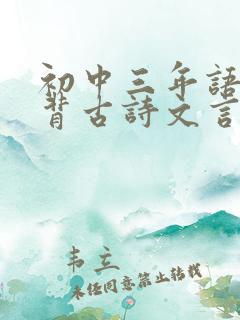 初中三年語
背古詩文言
韦立
未经同意禁止转载